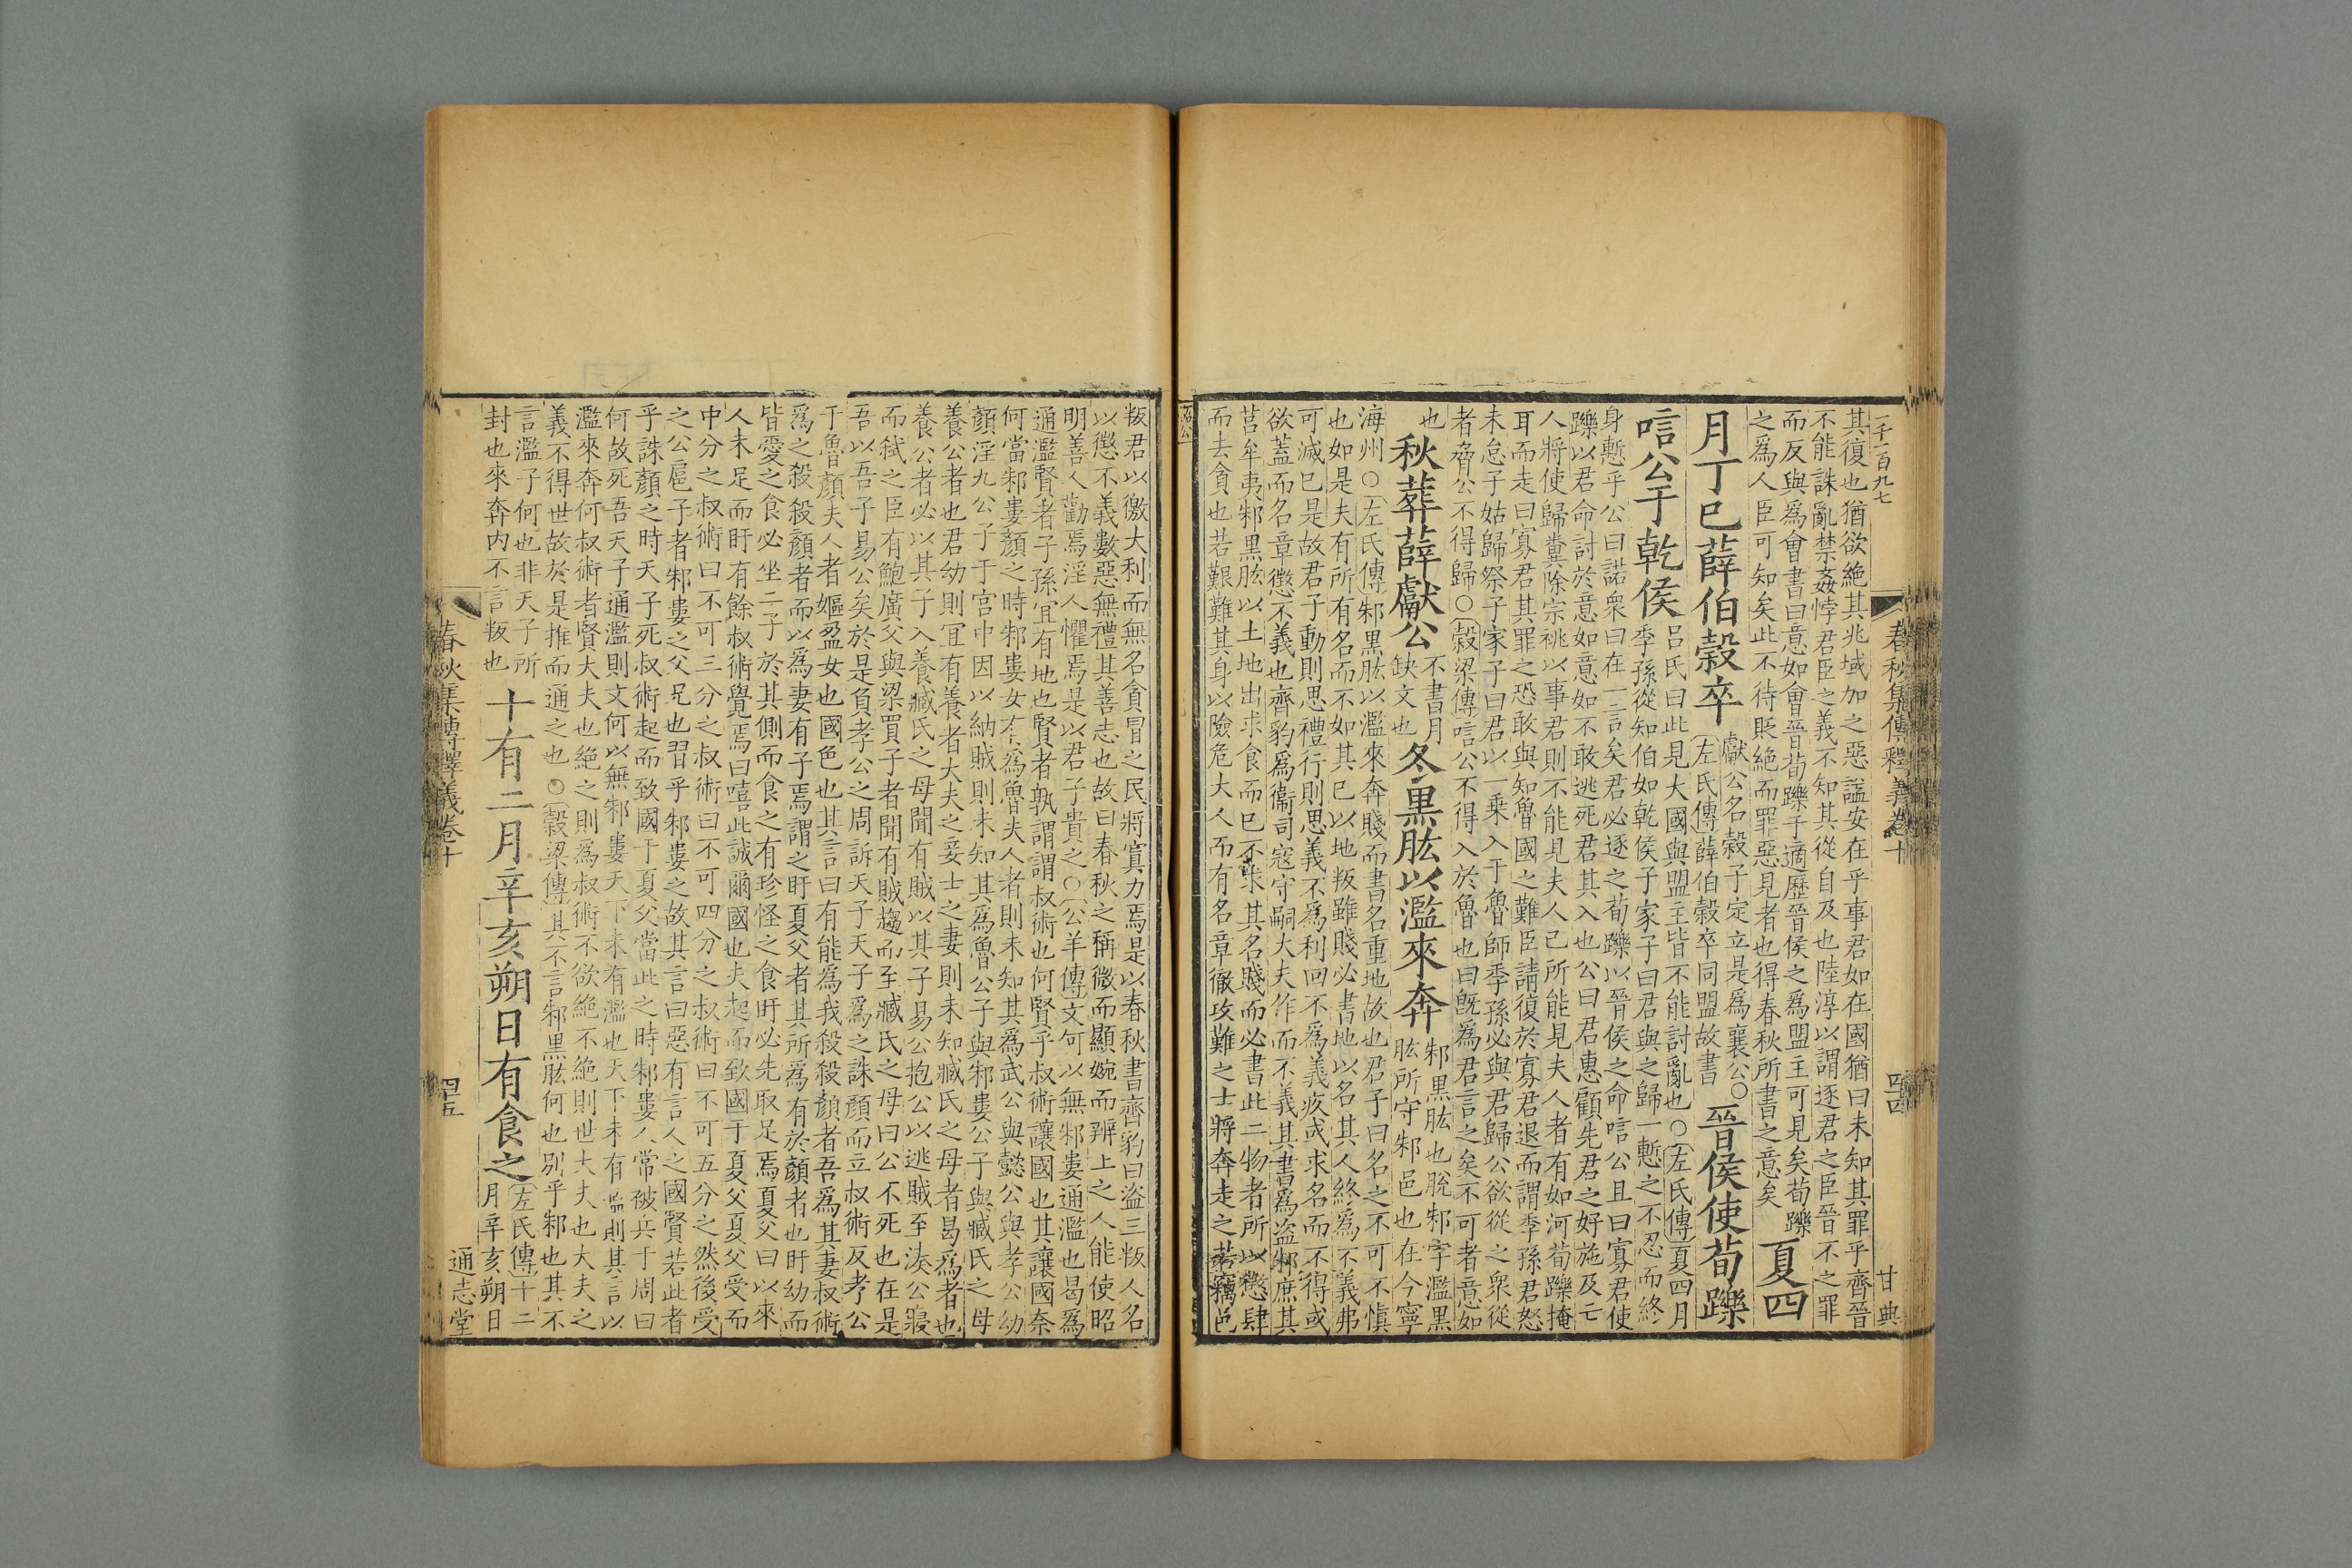 一千一百九七
春秋集傳釋義卷十
四四
甘典
其復也猶欲絶其兆域加之惡諡安在乎事君如在國猶曰未知其罪乎齊晉
不能誅亂禁姦悖君臣之義不知其從自及也陸淳以謂逐君之臣晉不之罪
而反與爲會書曰意如會晉荀躒于適歷晉侯之爲盟主可見矣荀躒
之爲人臣可知矣此不待貶絶而罪惡見者也得春秋所書之意矣
夏四
月丁巳薛伯穀卒
獻公名穀子定立是爲襄公○
左氏傳薛伯穀卒同盟故書
晉侯使荀躒
唁公于乾侯
呂氏曰此見大國與盟主皆不能討亂也○左氏傳夏四月
季孫從知伯如乾侯子家子曰君與之歸一慙之不忍而終
身慙乎公曰諾衆曰在一言矣君必逐之荀躒以晉侯之命唁公且曰寡君使
躒以君命討於意如意如不敢逃死君其入也公曰君惠顧先君之好施及亡
人將使歸糞除宗祧以事君則不能見夫人已所能見夫人者有如河荀躒掩
耳而走曰寡君其罪之恐敢與知魯國之難臣請復於寡君退而謂季孫君怒
未怠子姑歸祭子家子曰君以一乗入于魯師季孫必與君歸公欲從之衆從
者脅公不得歸○穀梁傳唁公不得入於魯也曰旣爲君言之矣不可者意如
也
秋葬薛獻公
不書月
缺文也
冬黒肱以濫來奔
邾黒肱也脫邾字濫黒
肱所守邾邑也在今寧
海州○左氏傳邾黒肱以濫來奔賤而書名重地故也君子曰名之不可不愼
也如是夫有所有名而不如其已以地叛雖賤必書地以名其人終爲不義弗
可滅已是故君子動則思禮行則思義不爲利回不爲義疚或求名而不得或
欲蓋而名章懲不義也齊豹爲衞司寇守嗣大夫作而不義其書爲盗邾庶其
莒牟夷邾黒肱以土地出求食而已不求其名賤而必書此二物者所以懲肆
而去貪也若艱難其身以險危大人而有名章徹攻難之士將奔走之若竊邑
叛君以徼大利而無名貪冒之民將寘力焉是以春秋書齊豹曰盗三叛人名
以懲不義數惡無禮其善志也故曰春秋之稱微而顯婉而辨上之人能使昭
明善人勸焉淫人懼焉是以君子貴之○公羊傳文何以無邾婁通濫也曷爲
通濫賢者子孫宜有地也賢者孰謂謂叔術也何賢乎叔術讓國也其讓國奈
何當邾婁顏之時邾婁女有爲魯夫人者則未知其爲武公與懿公與孝公幼
顏淫九公子于宫中因以納賊則未知其爲魯公子與邾婁公子與臧氏之母
養公者也君幼則宜有養者大夫之妾士之妻則未知臧氏之母者曷爲者也
養公者必以其子入養臧氏之母聞有賊以其子易公抱公以逃賊至湊公寢
而弑之臣有鮑廣父與梁買子者聞有賊趨而至臧氏之母曰公不死也在是
吾以吾子易公矣於是負孝公之周訴天子天子爲之誅顏而立叔術反孝公
于魯顏夫人者嫗盈女也國色也其言曰有能爲我殺殺顏者吾爲其妻叔術
爲之殺殺顏者而以爲妻有子焉謂之盱夏父者其所爲有於顏者也盱幼而
皆愛之食必坐二子於其側而食之有珍怪之食盱必先取足焉夏父曰以來
人未足而盱有餘叔術覺焉曰嘻此誠爾國也夫起而致國于夏父夏父受而
中分之叔術曰不可三分之叔術曰不可四分之叔術曰不可五分之然後受
之公扈子者邾婁之父兄也習乎邾婁之故其言曰惡有言人之國賢若此者
乎誅顏之時天子死叔術起而致國于夏父當此之時邾婁人常被兵于周曰
何故死吾天子通濫則文何以無邾婁天下未有濫也天下未有濫則其言以
濫來奔何叔術者賢大夫也絶之則爲叔術不欲絶不絶則世大夫也大夫之
義不得世故於是推而通之也○穀梁傳其不言邾黒肱何也別乎邾也其不
言濫子何也非天子所
封也來奔內不言叛也
十有二月辛亥朔日有食之
左氏傳十二
月辛亥朔日
春秋集傳釋義卷十
四五
通志堂